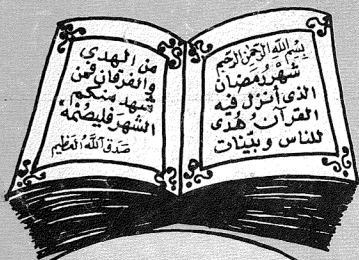 بِسْمِ اللهِ الرَّحْمٰنِ الرَّحِيم
شَهْرُ رَمَضَان
الذى أنزل فيه
القرآن هُدًى
للناس وبيّنات
من الهدى
والفرقان فمن
شهد منكم
الشهرَ فليصُمْهُ
صَدَقَ اللَّهُ العَظِيم